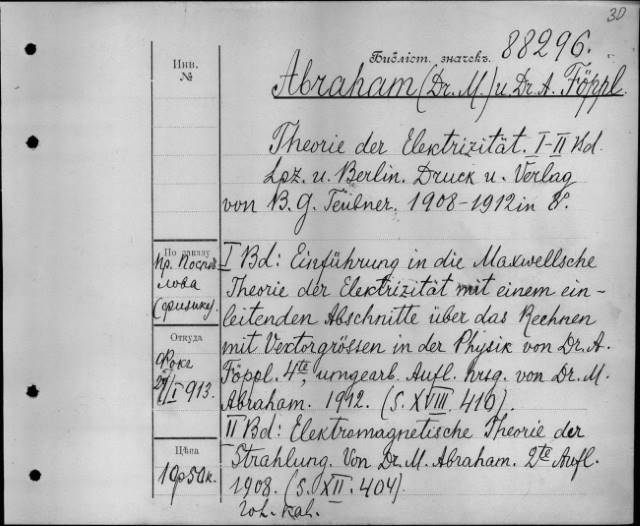 30
Библіст. значекъ. 88296.
Abraham (Dr. M.) u. Dr. A. Föppl.
Инв.
№
Theorie der Elektrizität. I-II Bd.
Lpz. u. Berlin. Druck u. Verlag
von B. G. Teubner. 1908-1912 in 8°.
По заказу
пр. Поспѣ
лова
(физику).
I Bd: Einführung in die Maxwellsche
Theorie der Elektrizität mit einem ein-
leitenden Abschnitte über das Rechnen
mit Vectorgrössen in der Physik von Dr. A.
Föppl. 4te, umgearb. Aufl. hrsg. von Dr. M.
Abraham. 1912. (S. XVIII. 410).
Откуда
Фокг
27/I 913.
II Bd: Elektromagnetische Theorie der
Strahlung. Von Dr. M. Abraham. 2te Aufl.
1908. (S. XII. 404).
Цѣна
10р50к.